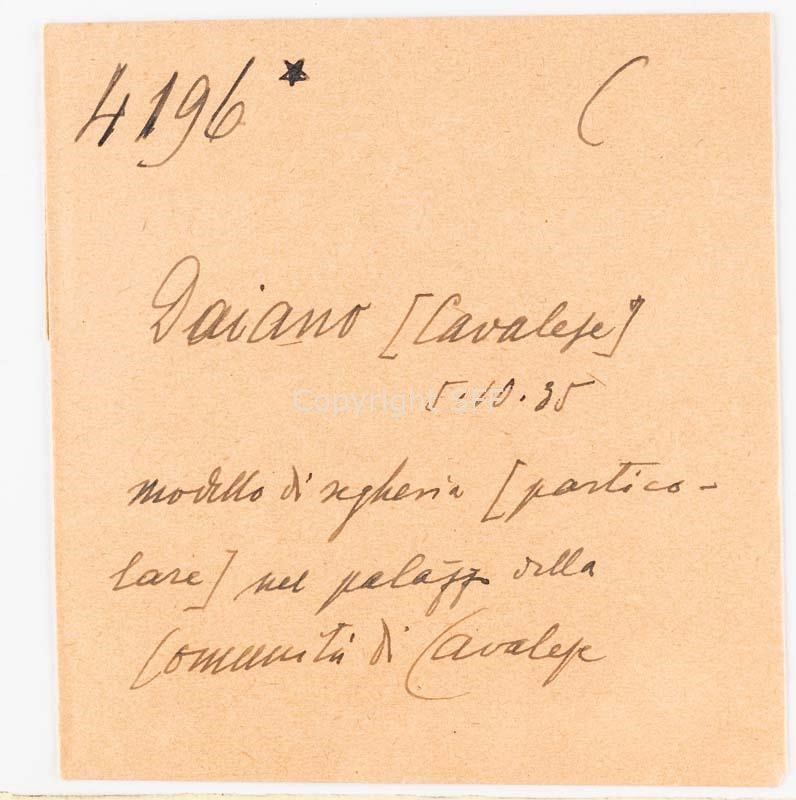 4196* C
Daiano [Cavalese]
5.10.35
modello di segheria [partico-
lare] nel palazzo della
Comunità di Cavalese
Copyright SFF